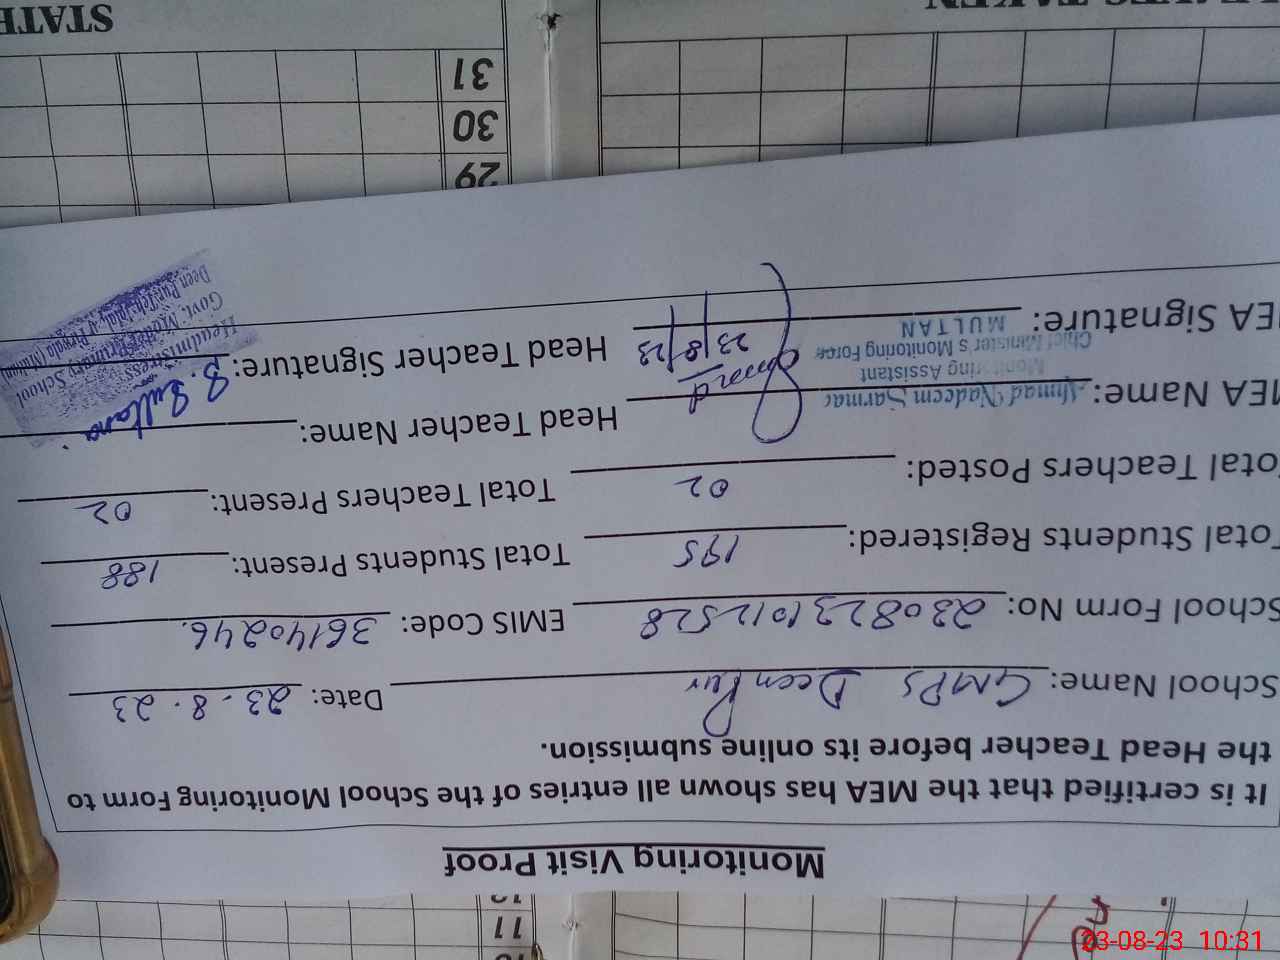 Monitoring Visit Proof
It is certified that the MEA has shown all entries of the School Monitoring Form to
the Head Teacher before its online submission.
School Name: GMPS Deen Pur Date: 23.8.23
School Form No: 2308231012528 EMIS Code: 36140246.
Total Students Registered: 195 Total Students Present: 188
Total Teachers Posted: 02 Total Teachers Present: 02
MEA Name: Ahmad Nadeem Sarmad Head Teacher Name: S. Sultana
Monitoring Assistant
Chief Minister's Monitoring Force
MULTAN
MEA Signature: 23/8/23 Head Teacher Signature:
Headmistress
Govt. Model Primary School
Deen Pur
29
30
31
STATE
11
23-08-23 10:31